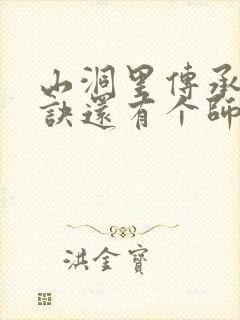 山洞里傳承
訣還有个師
洪金寶